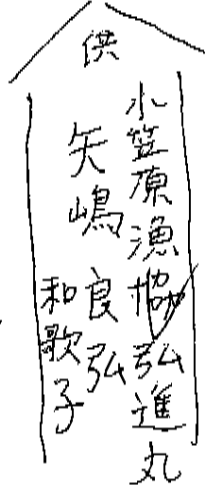 供
小笠原漁協弘進丸
矢嶋良弘
和歌子